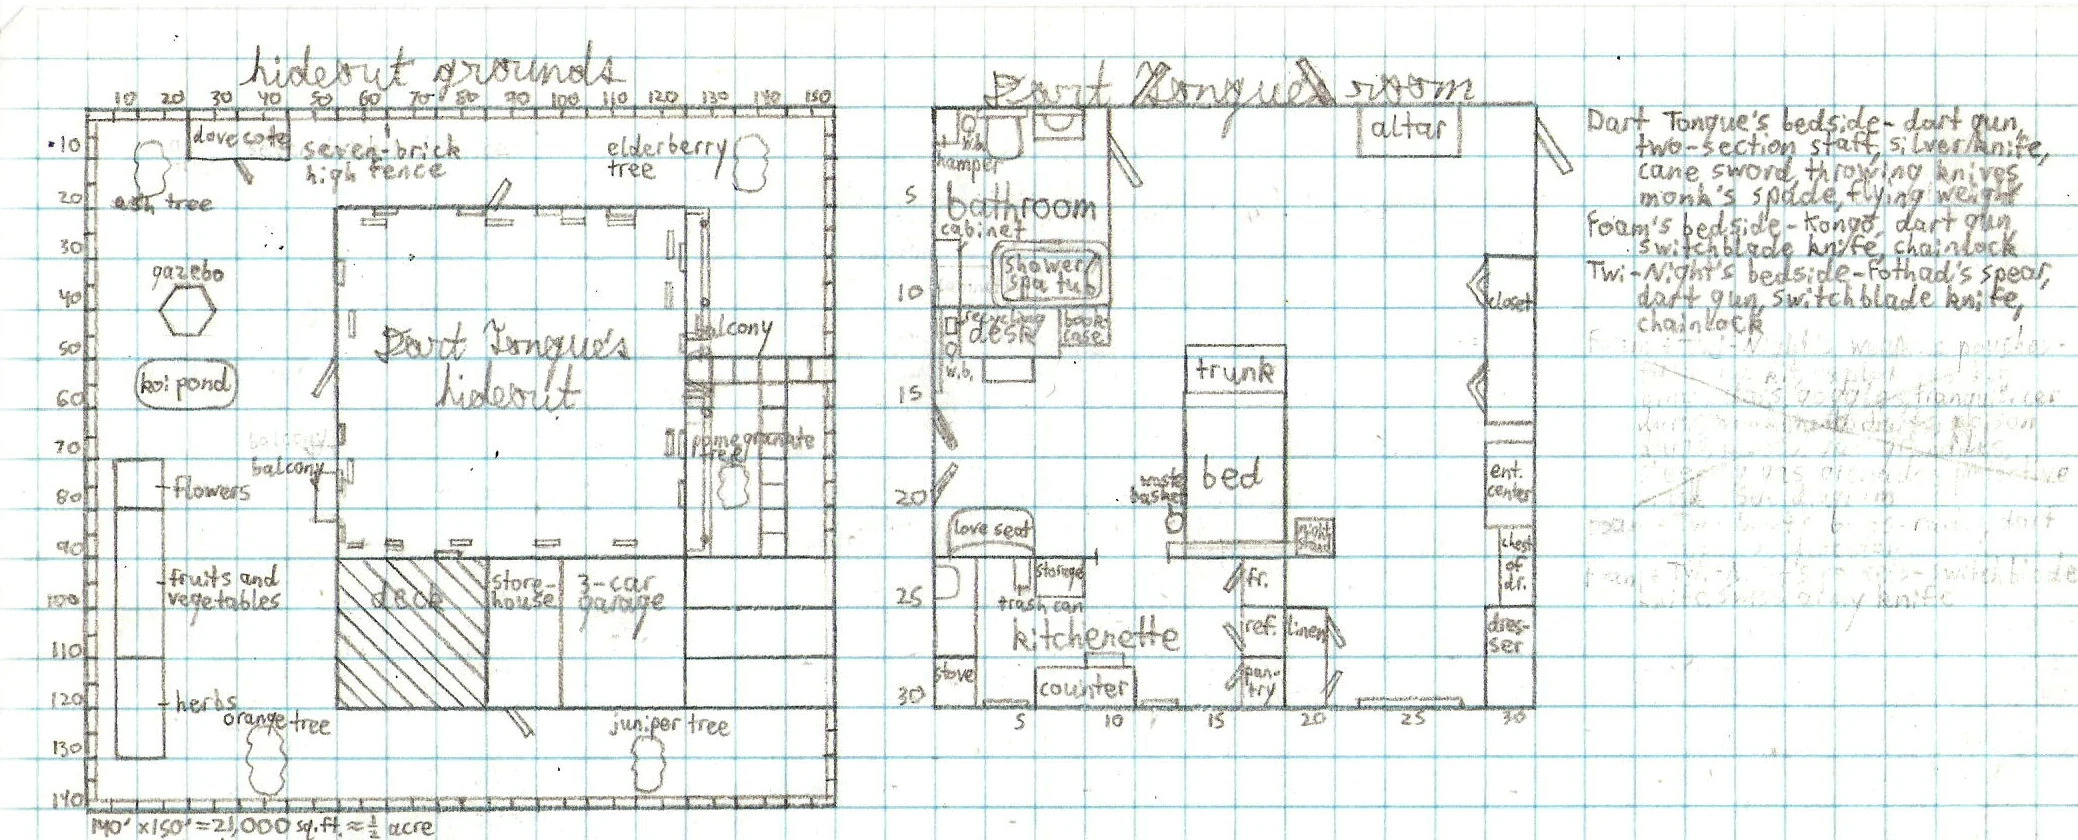 hideout grounds
10 20 30 40 50 60 70 80 90 100 110 120 130 140 150
10
20
30
40
50
60
70
80
90
100
110
120
130
140
dovecote
seven-brick
high fence
elderberry
tree
ash tree
gazebo
koi pond
Dart Tongue's
hideout
balcony
pomegranate
tree
balcony
balcony
flowers
fruits and
vegetables
herbs
deck
store-
house
3-car
garage
orange tree
juniper tree
140' x150'=21,000 sq.ft.≈½ acre
Dart Tongue's room
5
10
15
20
25
30
5 10 15 20 25 30
w.b.
hamper
bathroom
cabinet
shower/
spa tub
recycling
desk
book
case
w.b.
altar
closet
trunk
bed
waste
basket
night
stand
ent.
center
chest
of
dr.
dres-
ser
love seat
storage
trash can
kitchenette
stove
counter
fr.
ref.
linen
pan-
try
Dart Tongue's bedside- dart gun,
two-section staff, silver knife,
cane sword, throwing knives
monk's spade, flying weight
Foam's bedside-Kongo, dart gun,
switchblade knife, chainlock
Twi-Night's bedside-Fothad's spear,
dart gun, switchblade knife,
chainlock